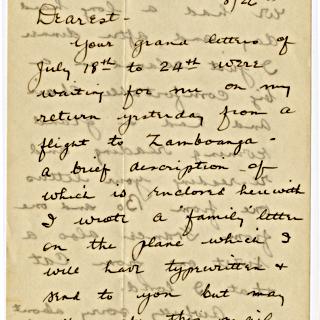 8/26
Dearest -
Your grand letters of
July 18th to 24th were
waiting for me on my
return yesterday from a
flight to Zamboanga -
a brief description of
which is enclosed herewith
I wrote a family letter
on the plane which I
will have typewritten &
send to you but may
this mail